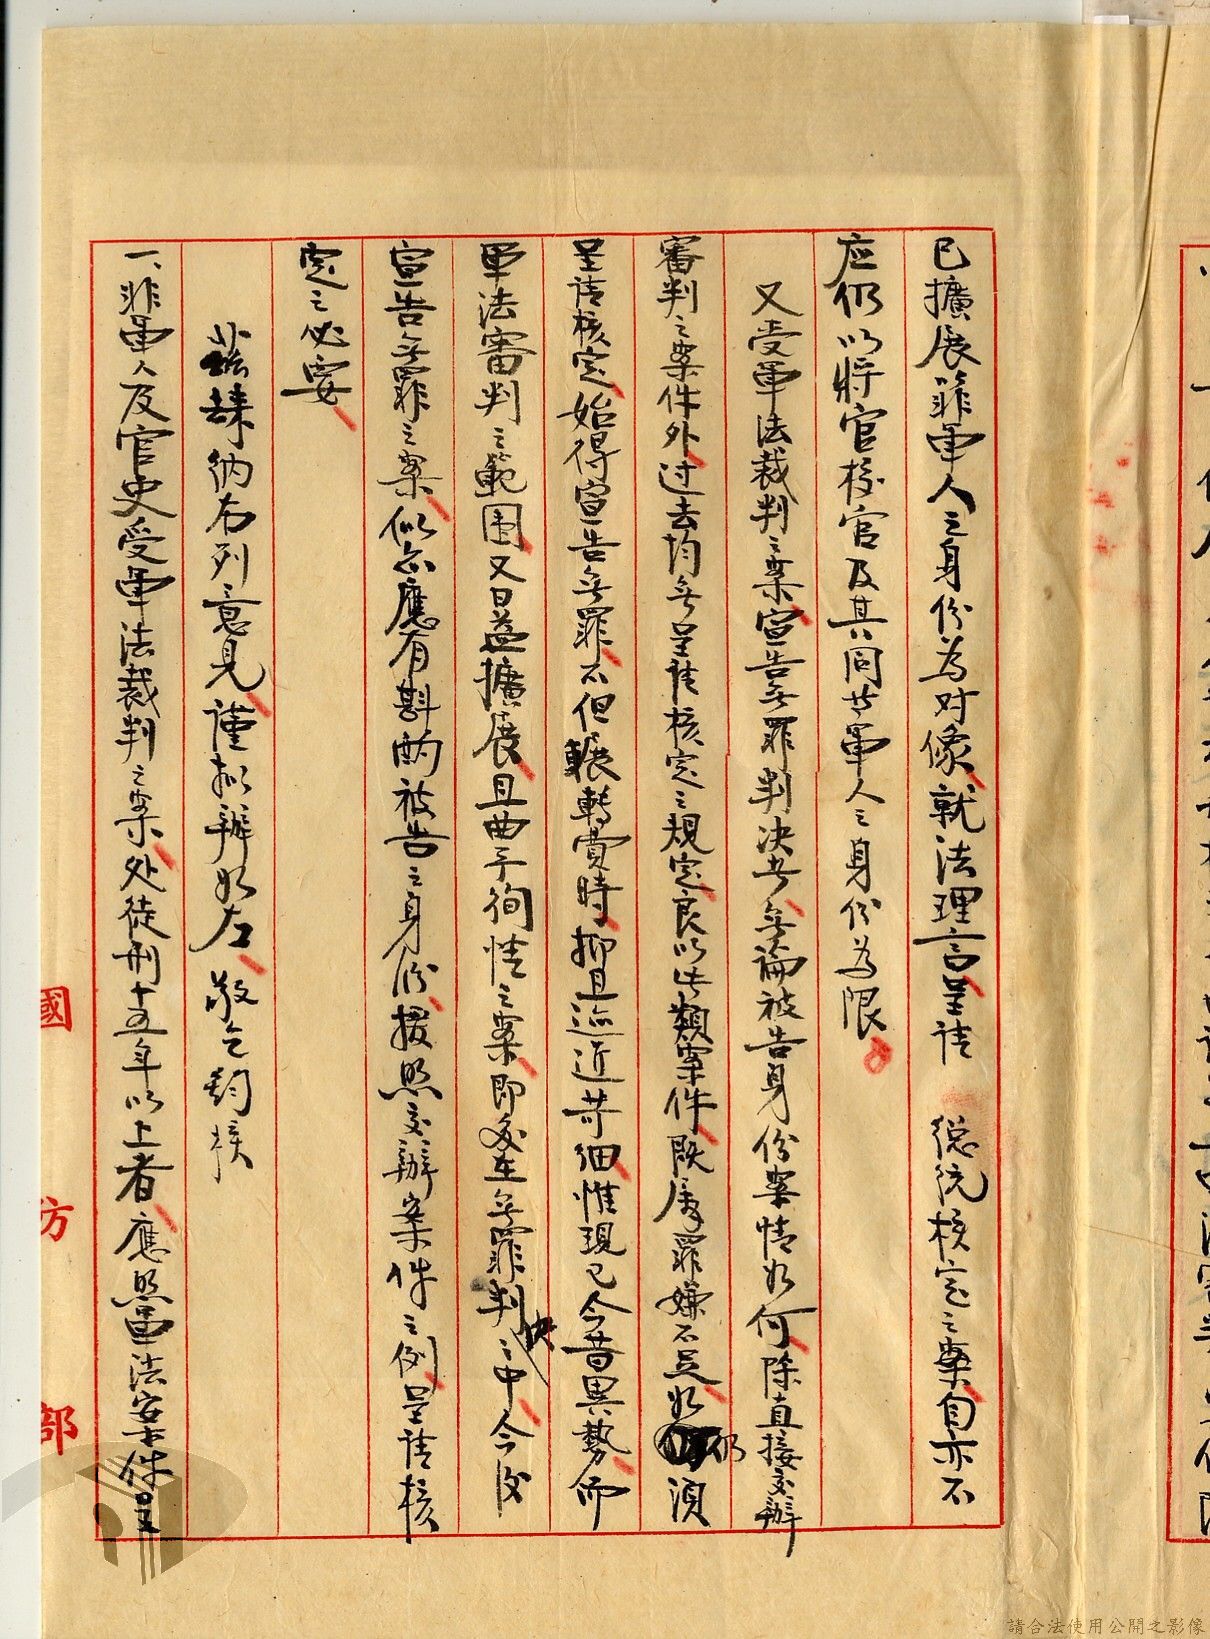 已擴展非軍人之身份為对像就法理言呈請 總統核定之案自亦不
应仍以將官校官及其同世軍人之身份為限
又受軍法裁判之案宣告無罪判决者無論被告身份案情如何除直接交辦
審判之案件外过去均無呈請核定之規定良以此類案件既屬罪嫌不足如仍須
呈請核定始得宣告無罪不但輾轉費時抑且迹近苛細惟現已今昔異勢而
軍法審判之範围又日益擴展且曲予徇情之案即多在無罪判决之中今後
宣告無罪之案似亦應有斟酌被告之身份援照交辦案件之例呈請核
定之必要
兹歸納右列意見謹拟辦如左敬乞鈞核
一、非軍人及官吏受軍法裁判之案处徒刑十五年以上者應照軍法案件呈
國防部
請合法使用公開之影像